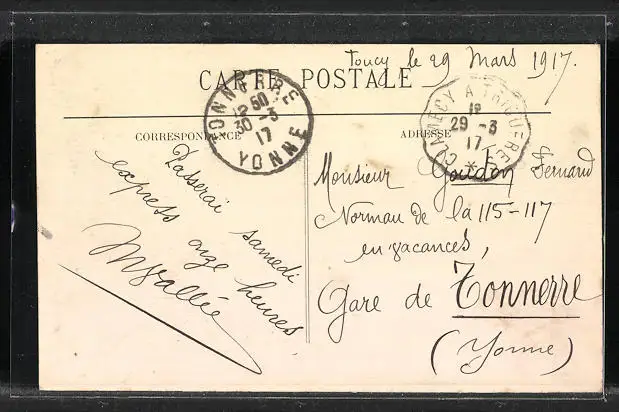 Toucy le 29 Mars 1917.
CARTE POSTALE
TONNERRE
12 50
30 -3
17
YONNE
CLAMECY A TRIGUERES
12
29 -3
17
CORRESPONDANCE
ADRESSE
Passerai samedi
express onze heures.
MVallée
Monsieur Goudon Fernand
Norman de la 115-117
en vacances,
Gare de Tonnerre
(Yonne)